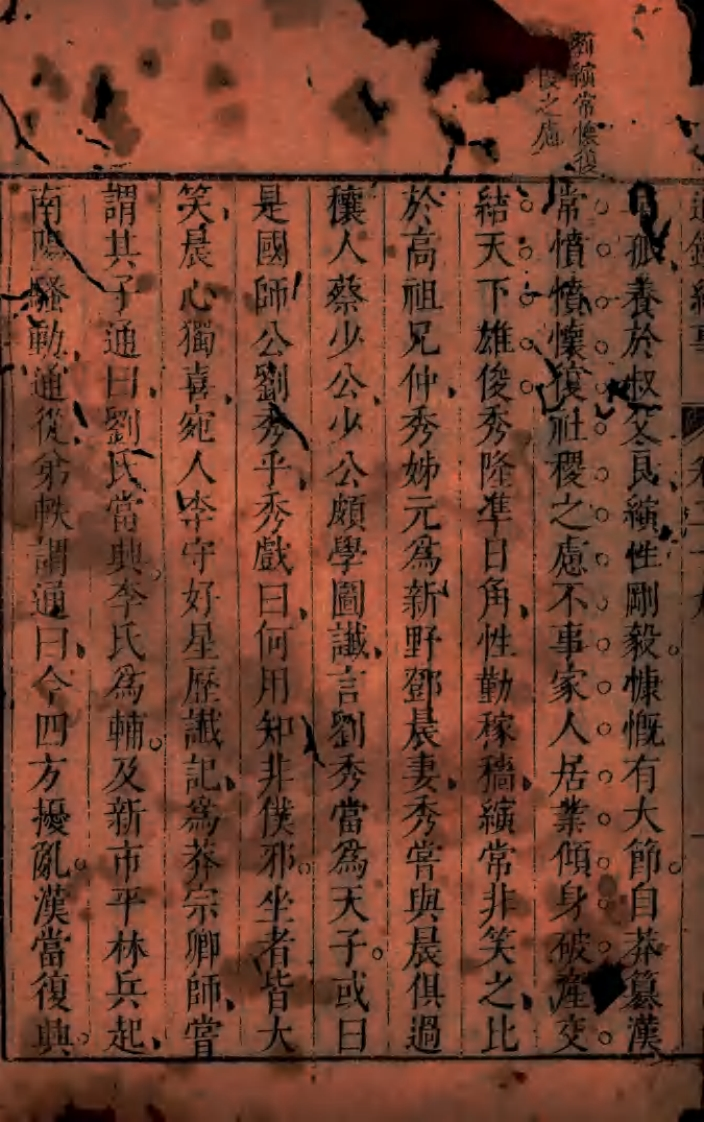 劉縯常懷復
稷之慮
通鑑紀事
卷二十九
孤養於叔父良縯性剛毅慷慨有大節自莽篡漢
常憤憤懷復社稷之慮不事家人居業傾身破產交
結天下雄俊秀隆準日角性勤稼穡縯常非笑之比
於高祖兄仲秀姊元爲新野鄧晨妻秀嘗與晨俱過
穰人蔡少公少公頗學圖讖言劉秀當爲天子或曰
是國師公劉秀乎秀戲曰何用知非僕邪坐者皆大
笑晨心獨喜宛人李守好星歷讖記爲莽宗卿師嘗
謂其子通曰劉氏當興李氏爲輔及新市平林兵起
南陽騷動通從弟軼謂通曰今四方擾亂漢當復興